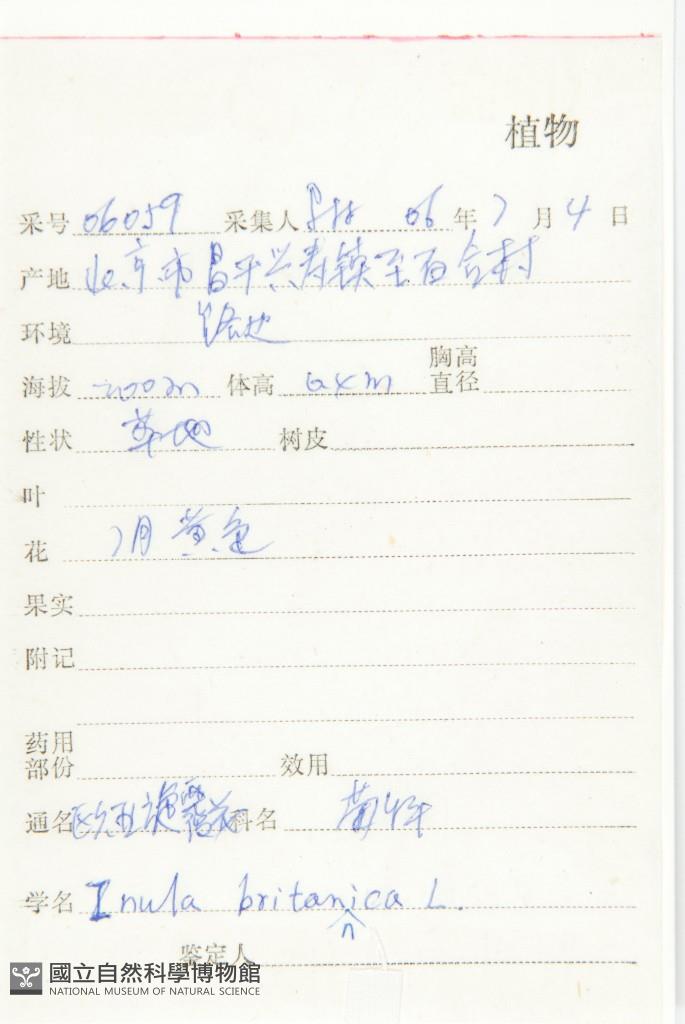 植物
采号 06059 采集人 06 年 7 月 4 日
产地 北京市昌平兴寿镇至百合村
环境 路边
海拔 200m 体高 胸高直径
性状 草地 树皮
叶
花 7月 黄色
果实
附记
药用部份 效用
通名 欧亚旋覆花 科名 菊科
学名 Inula britanica L.
n
鉴定人
國立自然科學博物館
NATIONAL MUSEUM OF NATURAL SCIENCE